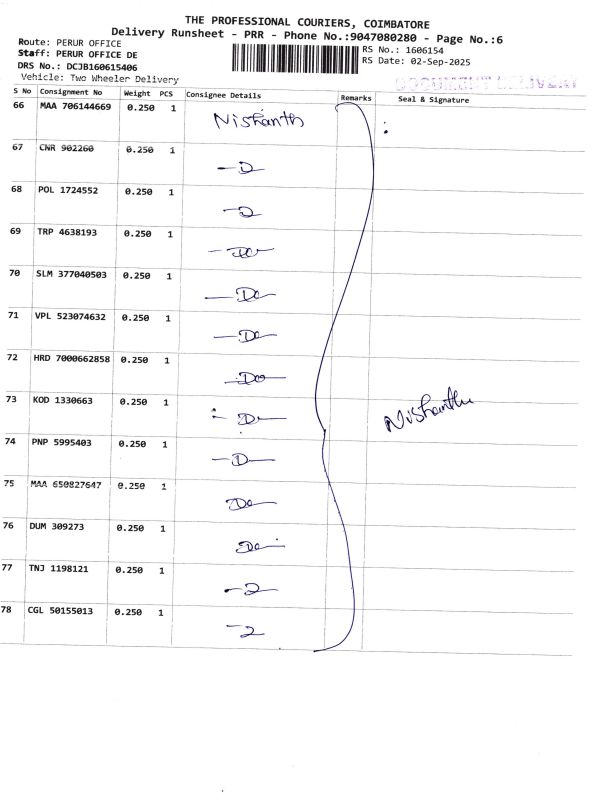 THE PROFESSIONAL COURIERS, COIMBATORE
Delivery Runsheet - PRR - Phone No.:9047080280 - Page No.:6
Route: PERUR OFFICE
Staff: PERUR OFFICE DE
DRS No.: DCJB160615406
Vehicle: Two Wheeler Delivery
RS No.: 1606154
RS Date: 02-Sep-2025
DOCUMENT DELIVERY
S No Consignment No Weight PCS Consignee Details Remarks Seal & Signature
66 MAA 706144669 0.250 1 Nishanth
67 CNR 902260 0.250 1 - D
68 POL 1724552 0.250 1 - D
69 TRP 4638193 0.250 1 - Do -
70 SLM 377040503 0.250 1 - Do -
71 VPL 523074632 0.250 1 - Do -
72 HRD 7000662858 0.250 1 - Do -
73 KOD 1330663 0.250 1 - D - Nishanth
74 PNP 5995403 0.250 1 - D -
75 MAA 650827647 0.250 1 Do -
76 DUM 309273 0.250 1 Do -
77 TNJ 1198121 0.250 1 - 2
78 CGL 50155013 0.250 1 - 2